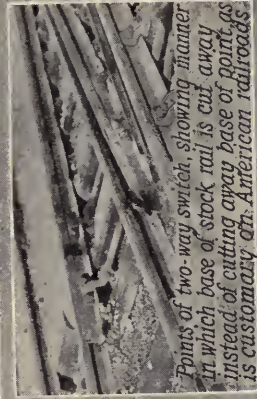 Points of two-way switch, showing manner
in which base of stock rail is cut away
instead of cutting away base of point, as
is customary on American railroads